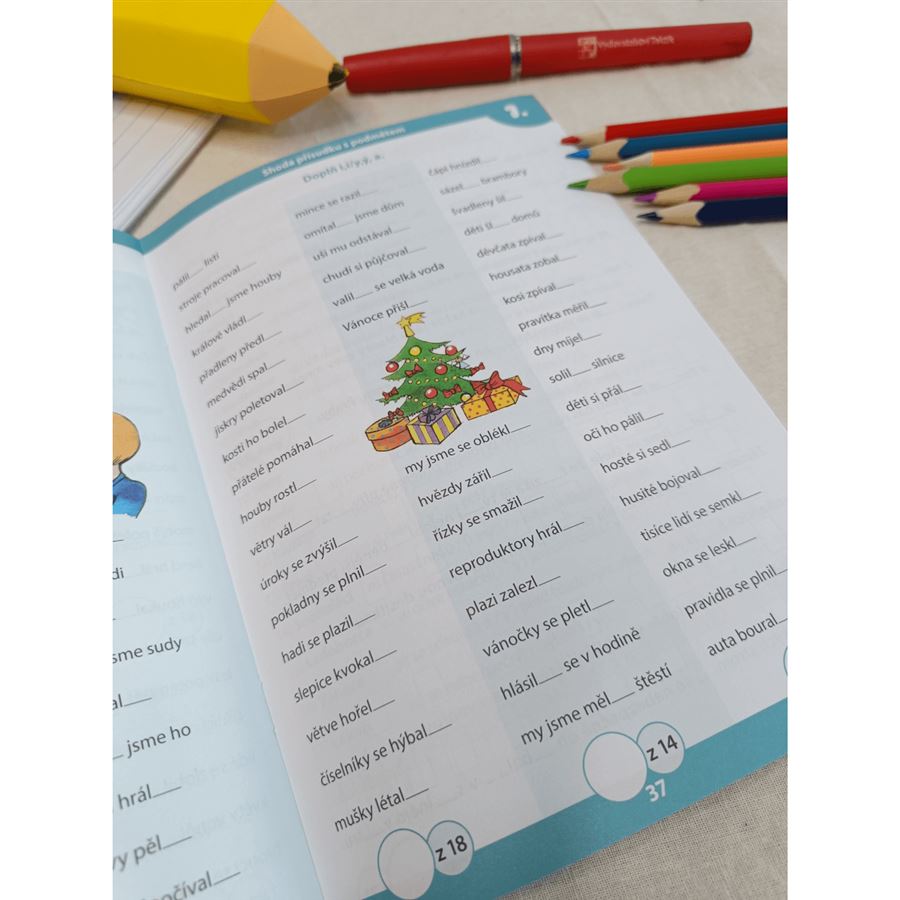 Vydavatelství Taktik
Shoda přísudku s podmětem
3.
Doplň i,í/y,ý, a:
pálil___ listí
stroje pracoval___
hledal___ jsme houby
králové vládl___
přadleny předl___
medvědi spal___
jiskry poletoval___
kosti ho bolel___
přátelé pomáhal___
houby rostl___
větry vál___
úroky se zvýšil___
pokladny se plnil___
hadi se plazil___
slepice kvokal___
větve hořel___
číselníky se hýbal___
mušky létal___
z 18
mince se razil___
omítal___ jsme dům
uši mu odstával___
chudí si půjčoval___
valil___ se velká voda
Vánoce přišl___
my jsme se oblékl___
hvězdy zářil___
řízky se smažil___
reproduktory hrál___
plazi zalezl___
vánočky se pletl___
hlásil___ se v hodině
my jsme měl___ štěstí
z 14
čápi hnízdil___
sázel___ brambory
švadleny šil___
děti šl___ domů
děvčata zpíval___
housata zobal___
kosi zpíval___
pravítka měřil___
dny míjel___
solil___ silnice
děti si přál___
oči ho pálil___
hosté si sedl___
husité bojoval___
tisíce lidí se semkl___
okna se leskl___
pravidla se plnil___
auta boural___
37
di
sme sudy
al___
___ jsme ho
hrál___
vy pěl___
počíval___